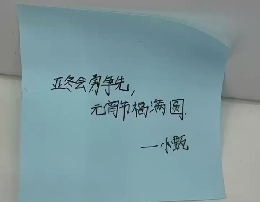 亚冬会勇争先，
元宵节福满圆.
一小甄